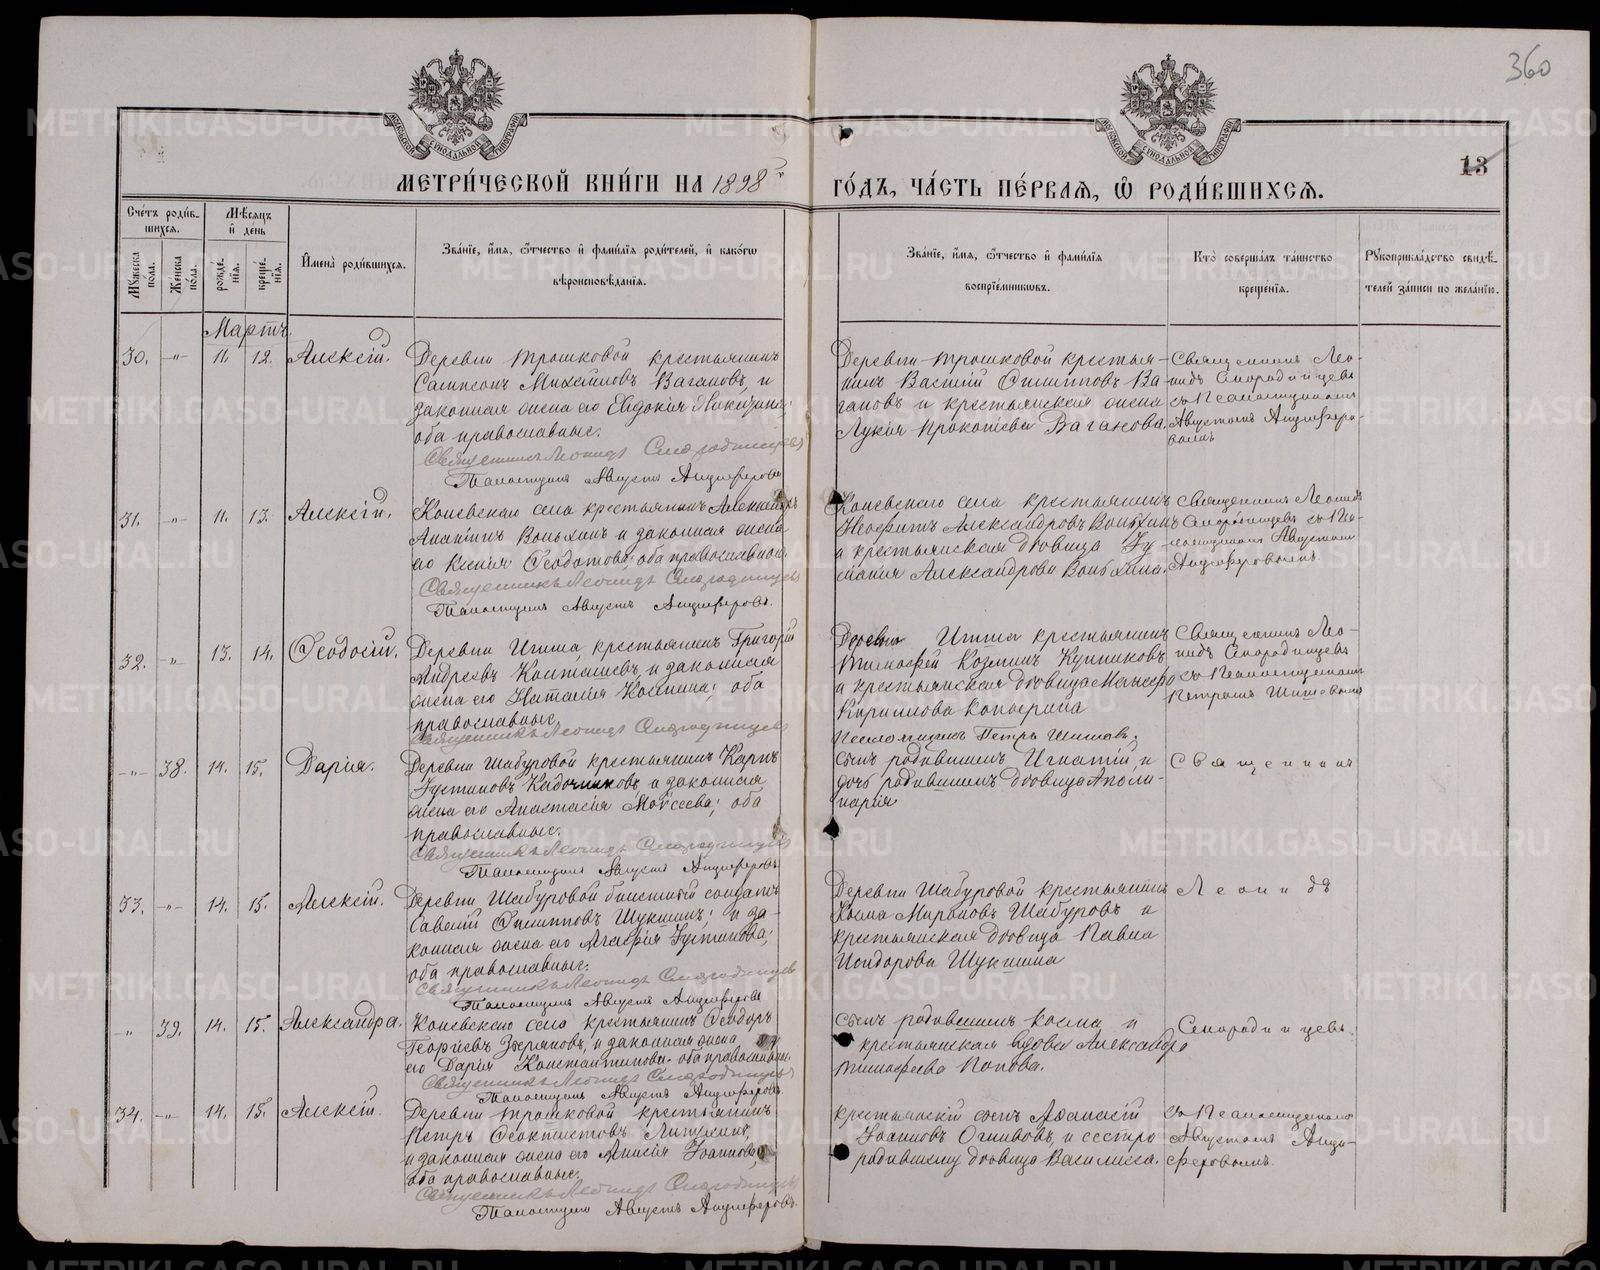 360
13
МЕТРИ́ЧЕСКОЙ КНИ́ГИ НА 1898 й
ГО́ДЪ, ЧА́СТЬ ПЕ́РВАЯ, Ѡ҆ РОДИ́ВШИХСЯ.
Сче́тъ роди́в-
шихся.
Мꙋ́жеска по́ла.
Же́нска по́ла.
Мѣ́сяцъ и҆ де́нь
рожде́нїя.
креще́нїя.
И҆мена̀ роди́вшихся.
Зва́нїе, и҆́мя, ѻ҆́тчество и҆ фами́лїя роди́телей, и҆ како́гѡ
вѣроисповѣ́данїя.
Зва́нїе, и҆́мя, ѻ҆́тчество и҆ фами́лїя
воспрїе́мниковъ.
Кто̀ соверша́лъ та́инство
креще́нїя.
Рꙋкоприкла́дство свидѣ́-
телей за́писи по жела́нїю.
Мартъ.
30. -„- 11. 12. Алексій.
Деревни Трошковой крестьянинъ
Сампсонъ Михайловъ Вагановъ, и
законная жена его Евдокія Никитина;
оба православные.
Священникъ Леонидъ Смородинцевъ
Псаломщикъ Августъ Анциферовъ
Деревни Трошковой крестья-
нинъ Василій Филипповъ Ва-
гановъ и крестьянская жена
Лукія Прокопіева Ваганова.
Священникъ Лео-
нидъ Смородинцевъ
съ Псаломщикомъ
Августомъ Анциферо-
вымъ
31. -„- 11. 13. Алексій.
Коневскаго села крестьянинъ Александръ
Ананьинъ Воньхинъ и законная жена
его Ксенія Ѳеодотова; оба православные.
Священникъ Леонидъ Смородинцевъ
Псаломщикъ Августъ Анциферовъ.
Коневскаго села крестьянинъ
Неофитъ Александровъ Воньхинъ
и крестьянская дѣвица Іу-
ліанія Александрова Воньхина.
Священникъ Леонидъ
Смородинцевъ съ Пса-
ломщикомъ Августомъ
Анциферовымъ
32. -„- 13. 14. Ѳеодосій.
Деревни Игиша, крестьянинъ Григорій
Андреевъ и законная
жена его Наталія оба
православные
Священникъ Леонидъ Смородинцевъ
Псаломщикъ Петръ Шишевъ.
Деревни Игиша крестьянинъ
Тимофей Козминъ Купниковъ
и крестьянская дѣвица
Кириллова Копырина
Священникъ Лео-
нидъ Смородинцевъ
съ Псаломщикомъ
Петромъ Шишевымъ
-„- 38. 14. 15. Дарія.
Деревни Шабуровой крестьянинъ Карпъ
Іустиновъ Кадочниковъ, и законная
жена его Анастасія Моѵсеева; оба
православные.
Священникъ Леонидъ Смородинцевъ
Псаломщикъ Августъ Анциферовъ
сынъ родившаго Игнатій, и
дочь родившаго дѣвица Аполи-
нарія
Священникъ
33. -„- 14. 15. Алексій.
Деревни Шабуровой билетный солдатъ
Савелій Филипповъ Шукшинъ; и за-
конная жена его Агафія Іустинова;
оба православные.
Священникъ Леонидъ Смородинцевъ
Псаломщикъ Августъ Анциферовъ
Деревни Шабуровой крестьянинъ
Козма Мироновъ Шабуровъ и
крестьянская дѣвица Павла
Исидорова Шукшина
Леонидъ
-„- 39. 14. 15. Александра.
Коневскаго села крестьянинъ Ѳеодоръ
Георгіевъ Звѣряковъ, и законная жена
его Дарія Константинова; оба православные.
Священникъ Леонидъ Смородинцевъ
Псаломщикъ Августъ Анциферовъ.
сынъ родившаго Козма и
крестьянская вдова Александра
Тимофеева Попова.
Смородинцевъ.
34. -„- 14. 15. Алексій.
Деревни Трошковой крестьянинъ
Петръ Ѳеоктистовъ
и законная жена его Анисія Іоаннова;
оба православные.
Священникъ Леонидъ Смородинцевъ
Псаломщикъ Августъ Анциферовъ.
крестьянскій сынъ Аѳанасій
Іоанновъ Огнивовъ, и сестра
родившему дѣвица Василисса.
съ Псаломщикомъ
Августомъ Анци-
феровымъ.